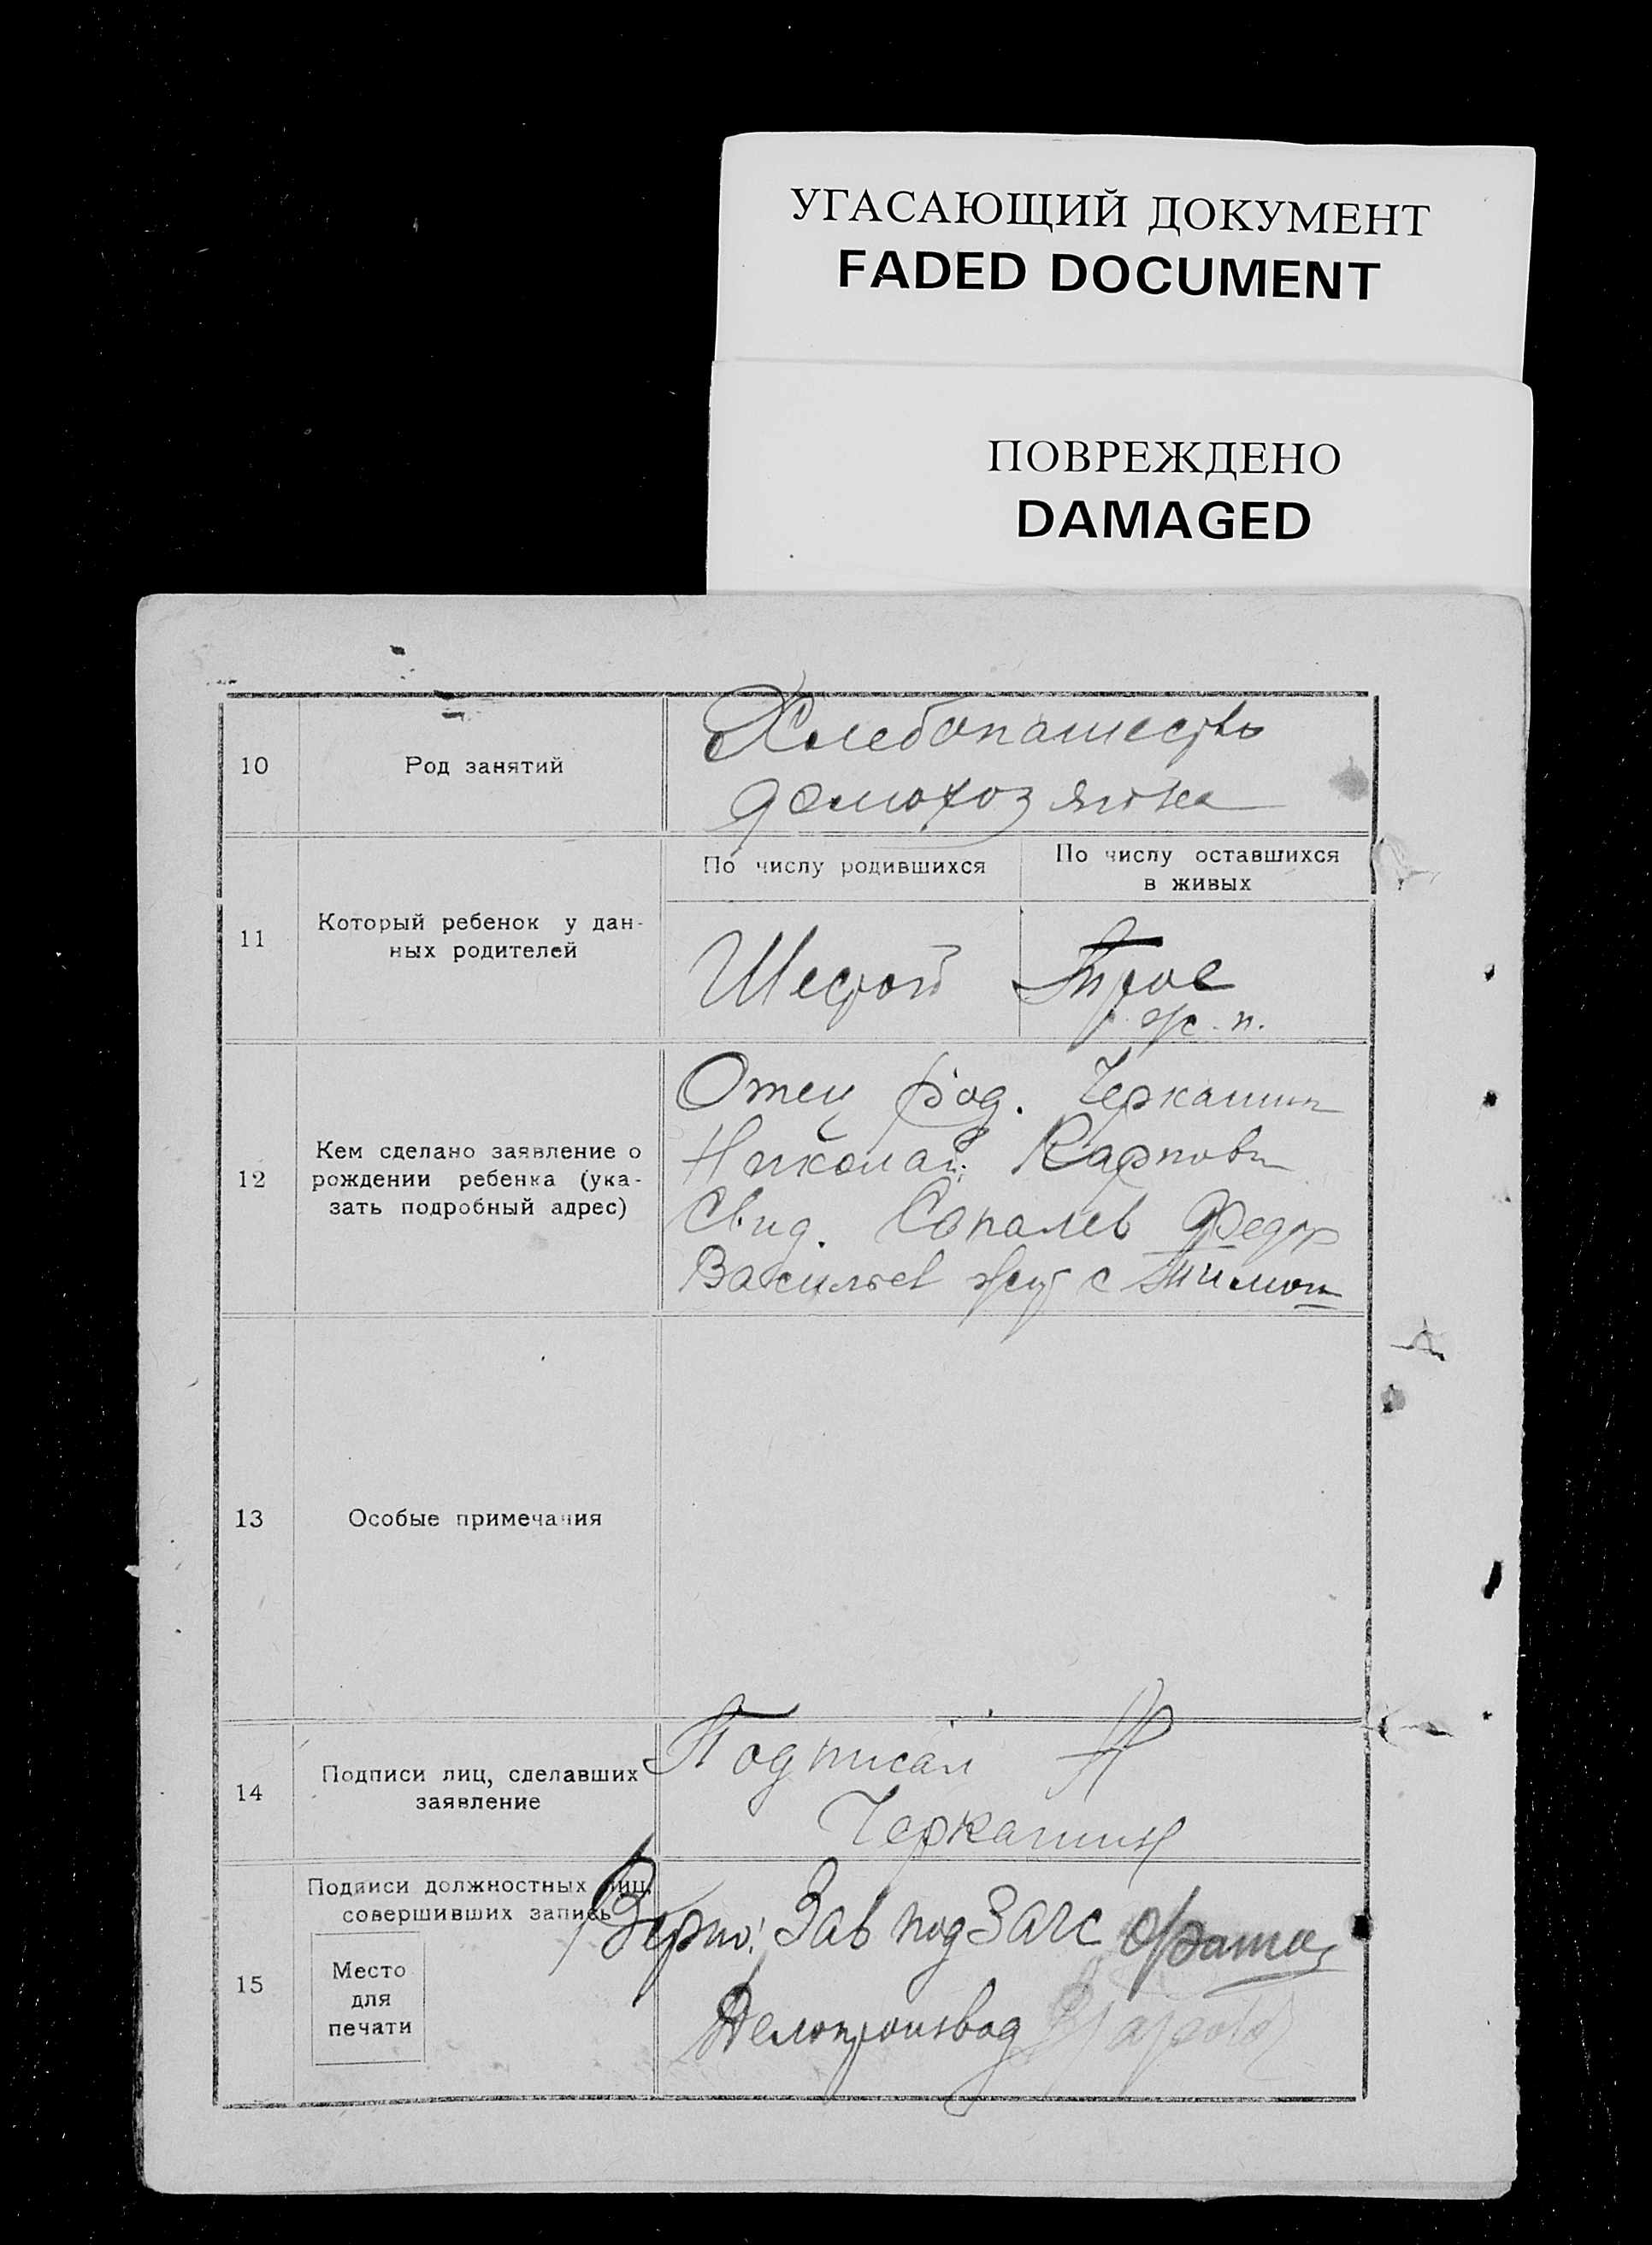 УГАСАЮЩИЙ ДОКУМЕНТ
FADED DOCUMENT
ПОВРЕЖДЕНО
DAMAGED
10
Род занятий
Хлебопашество
домохозяйка
11
Который ребенок у дан-
ных родителей
По числу родившихся
По числу оставшихся
в живых
Шестой
Трое
12
Кем сделано заявление о
рождении ребенка (ука-
зать подробный адрес)
Отец род. Черкашин
Николай Карпов
Свид. Сопалев Федор
Васильев жит с Тимон
13
Особые примечания
14
Подписи лиц, сделавших
заявление
Подписал Н
Черкашин
15
Подписи должностных лиц,
совершивших запись
Место
для
печати
Верно: Зав подЗАГС
Делопроизвод